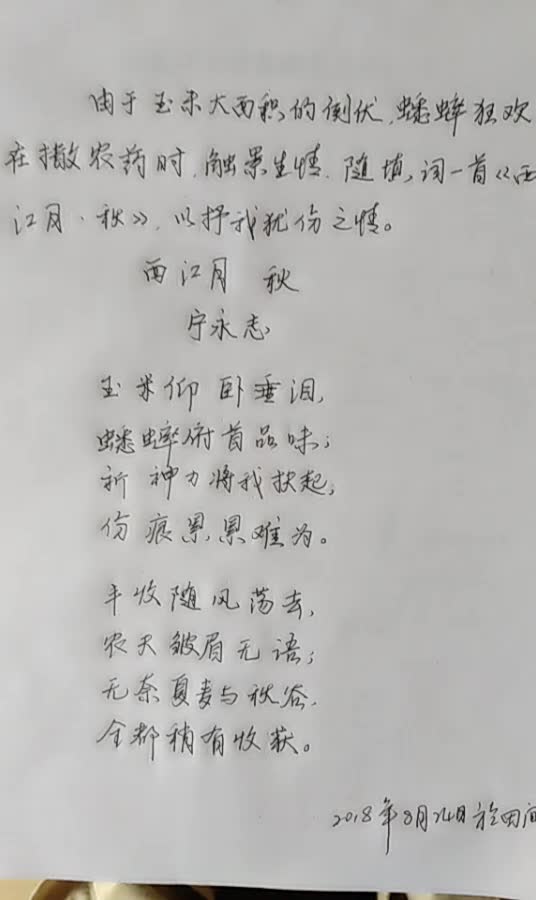 由于玉米大面积的倒伏,蟋蟀狂欢
在撒农药时,触景生情.随填,词一首《西
江月·秋》,以抒我犹伤之情。
西江月 秋
宁永志
玉米仰卧垂泪,
蟋蟀俯首品味;
祈神力将我扶起,
伤痕累累难为。
丰收随风荡去,
农夫皱眉无语;
无奈夏麦与秋谷,
全都稍有收获。
2018年8月24日於田间